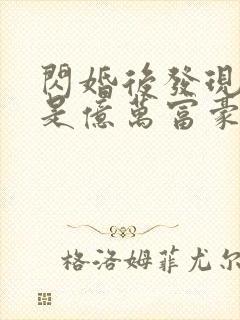 閃婚後發現
是億萬富豪
格洛姆菲尤尔